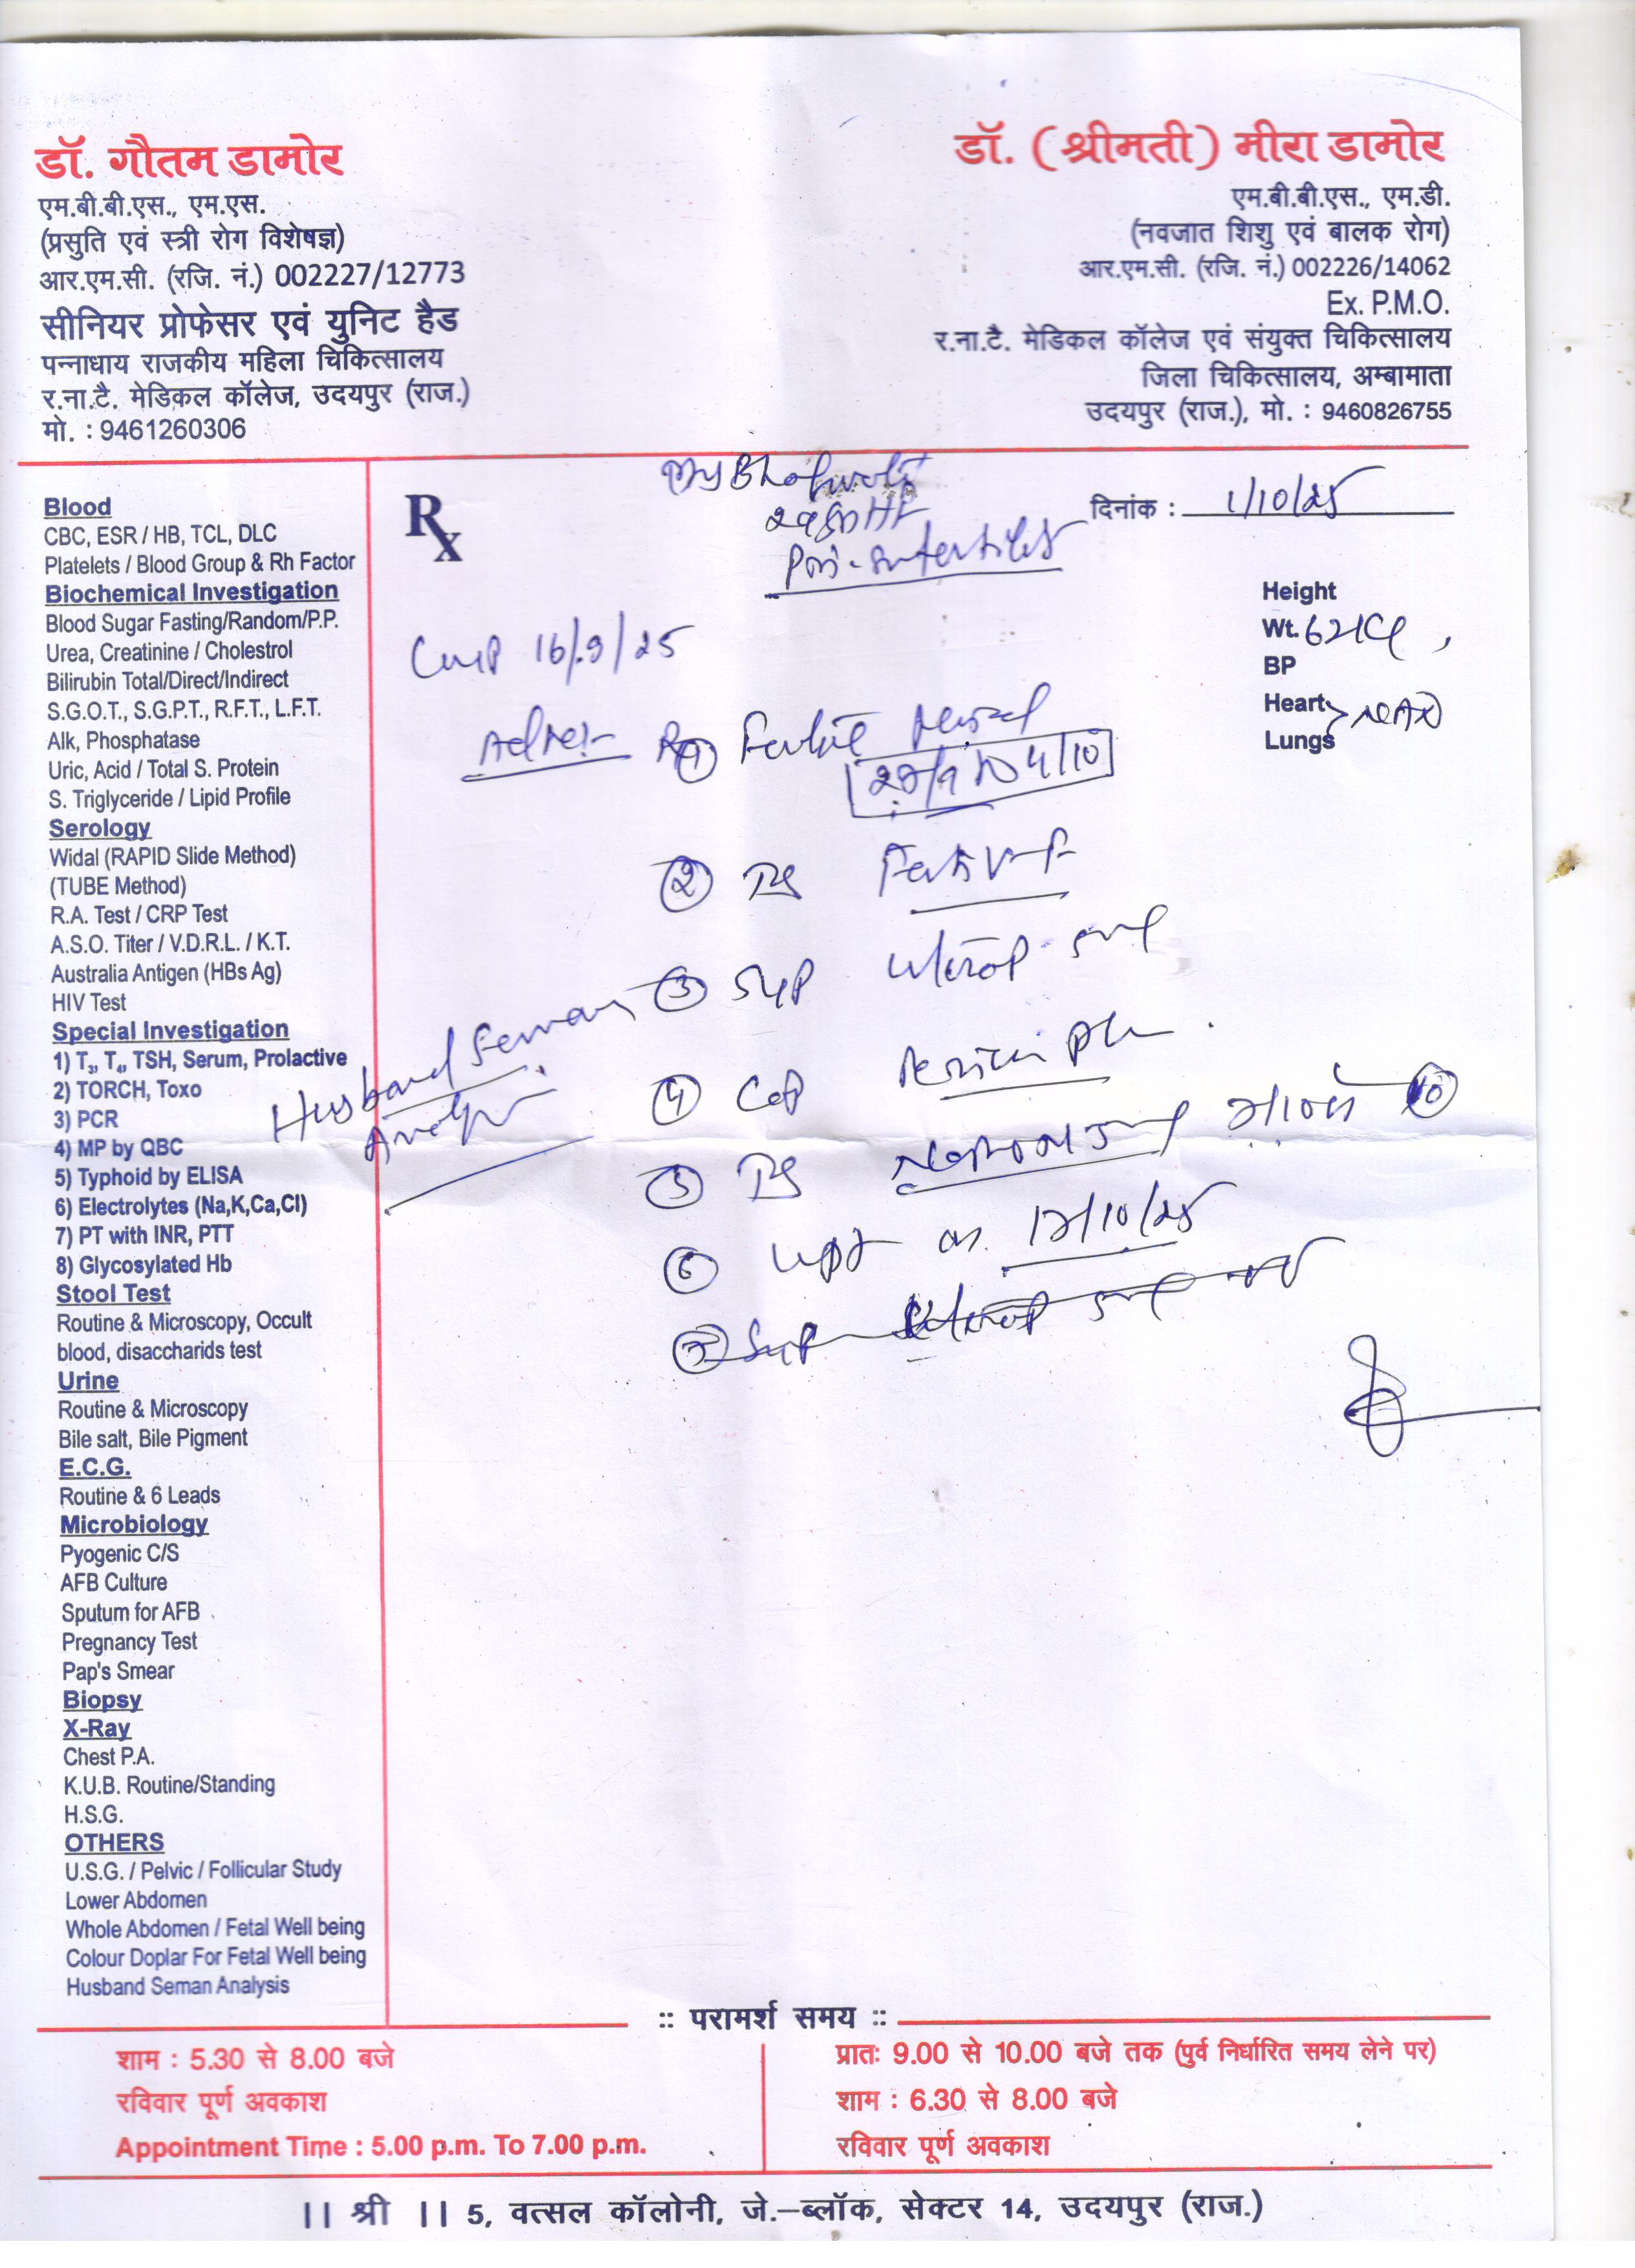 डॉ. गौतम डामोर
एम.बी.बी.एस., एम.एस.
(प्रसुति एवं स्त्री रोग विशेषज्ञ)
आर.एम.सी. (रजि. नं.) 002227/12773
सीनियर प्रोफेसर एवं युनिट हैड
पन्नाधाय राजकीय महिला चिकित्सालय
र.ना.टै. मेडिकल कॉलेज, उदयपुर (राज.)
मो. : 9461260306
डॉ. (श्रीमती) मीरा डामोर
एम.बी.बी.एस., एम.डी.
(नवजात शिशु एवं बालक रोग)
आर.एम.सी. (रजि. नं.) 002226/14062
Ex. P.M.O.
र.ना.टै. मेडिकल कॉलेज एवं संयुक्त चिकित्सालय
जिला चिकित्सालय, अम्बामाता
उदयपुर (राज.), मो. : 9460826755
Blood
CBC, ESR / HB, TCL, DLC
Platelets / Blood Group & Rh Factor
Biochemical Investigation
Blood Sugar Fasting/Random/P.P.
Urea, Creatinine / Cholestrol
Bilirubin Total/Direct/Indirect
S.G.O.T., S.G.P.T., R.F.T., L.F.T.
Alk, Phosphatase
Uric, Acid / Total S. Protein
S. Triglyceride / Lipid Profile
Serology
Widal (RAPID Slide Method)
(TUBE Method)
R.A. Test / CRP Test
A.S.O. Titer / V.D.R.L. / K.T.
Australia Antigen (HBs Ag)
HIV Test
Special Investigation
1) T₃, T₄, TSH, Serum, Prolactive
2) TORCH, Toxo
3) PCR
4) MP by QBC
5) Typhoid by ELISA
6) Electrolytes (Na,K,Ca,Cl)
7) PT with INR, PTT
8) Glycosylated Hb
Stool Test
Routine & Microscopy, Occult
blood, disaccharids test
Urine
Routine & Microscopy
Bile salt, Bile Pigment
E.C.G.
Routine & 6 Leads
Microbiology
Pyogenic C/S
AFB Culture
Sputum for AFB
Pregnancy Test
Pap's Smear
Biopsy
X-Ray
Chest P.A.
K.U.B. Routine/Standing
H.S.G.
OTHERS
U.S.G. / Pelvic / Follicular Study
Lower Abdomen
Whole Abdomen / Fetal Well being
Colour Doplar For Fetal Well being
Husband Seman Analysis
Rx
दिनांक : 1/10/25
Height
Wt. 62
BP
Heart
Lungs NAD
16/9/25
Adv:-
① Fertile Period
to 4/10
②
③ Syp
④ Cap
⑤
⑥ UPT on 12/10/25
⑦ Syp
Husband Seman
:: परामर्श समय ::
शाम : 5.30 से 8.00 बजे
रविवार पूर्ण अवकाश
Appointment Time : 5.00 p.m. To 7.00 p.m.
प्रातः 9.00 से 10.00 बजे तक (पुर्व निर्धारित समय लेने पर)
शाम : 6.30 से 8.00 बजे
रविवार पूर्ण अवकाश
|| श्री || 5, वत्सल कॉलोनी, जे.–ब्लॉक, सेक्टर 14, उदयपुर (राज.)